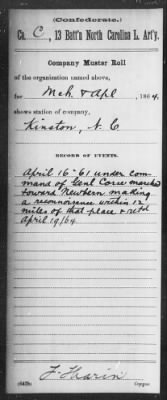 (Confederate.)
Co. C, 13 Batt'n North Carolina L. Art'y.
Company Muster Roll
of the organization named above,
for Mch & Apl, 1864.
shows station of company,
Kinston, N. C
RECORD OF EVENTS.
April 16" 61 under com-
mand of Genl Corse marched
toward Newbern making
a reconnoisence within 12
miles of that place & retd
April 19/64.
Copyist.